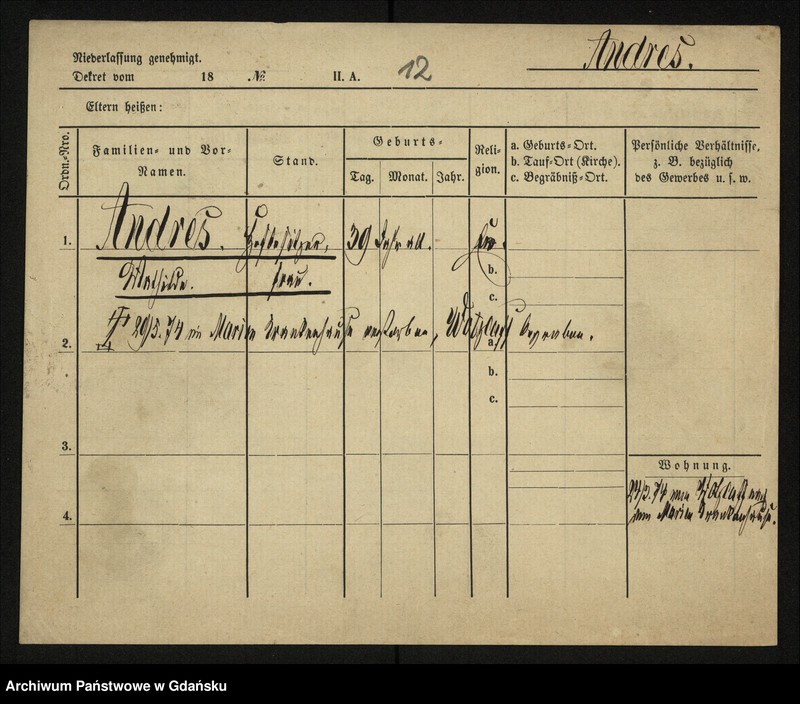 Andres.
Niederlassung genehmigt.
Dekret vom 18 . No. II. A. 12
Eltern heißen:
Ordn.-Nro.
Familien- und Vor-
Namen.
Stand.
Geburts-
Tag. Monat. Jahr.
Reli-
gion.
a. Geburts-Ort.
b. Tauf-Ort (Kirche).
c. Begräbniß-Ort.
Persönliche Verhältnisse,
z. B. bezüglich
des Gewerbes u. s. w.
1. Andres. Hofbesitzer, 39 Jahr alt.
Mathilde. frau. b.
c.
29/3.74 im Marien Krankenhause verstorben, begraben.
2. a
b.
c.
3.
Wohnung.
/3.74 von nach
dem Marien Krankenhause.
4.
Archiwum Państwowe w Gdańsku